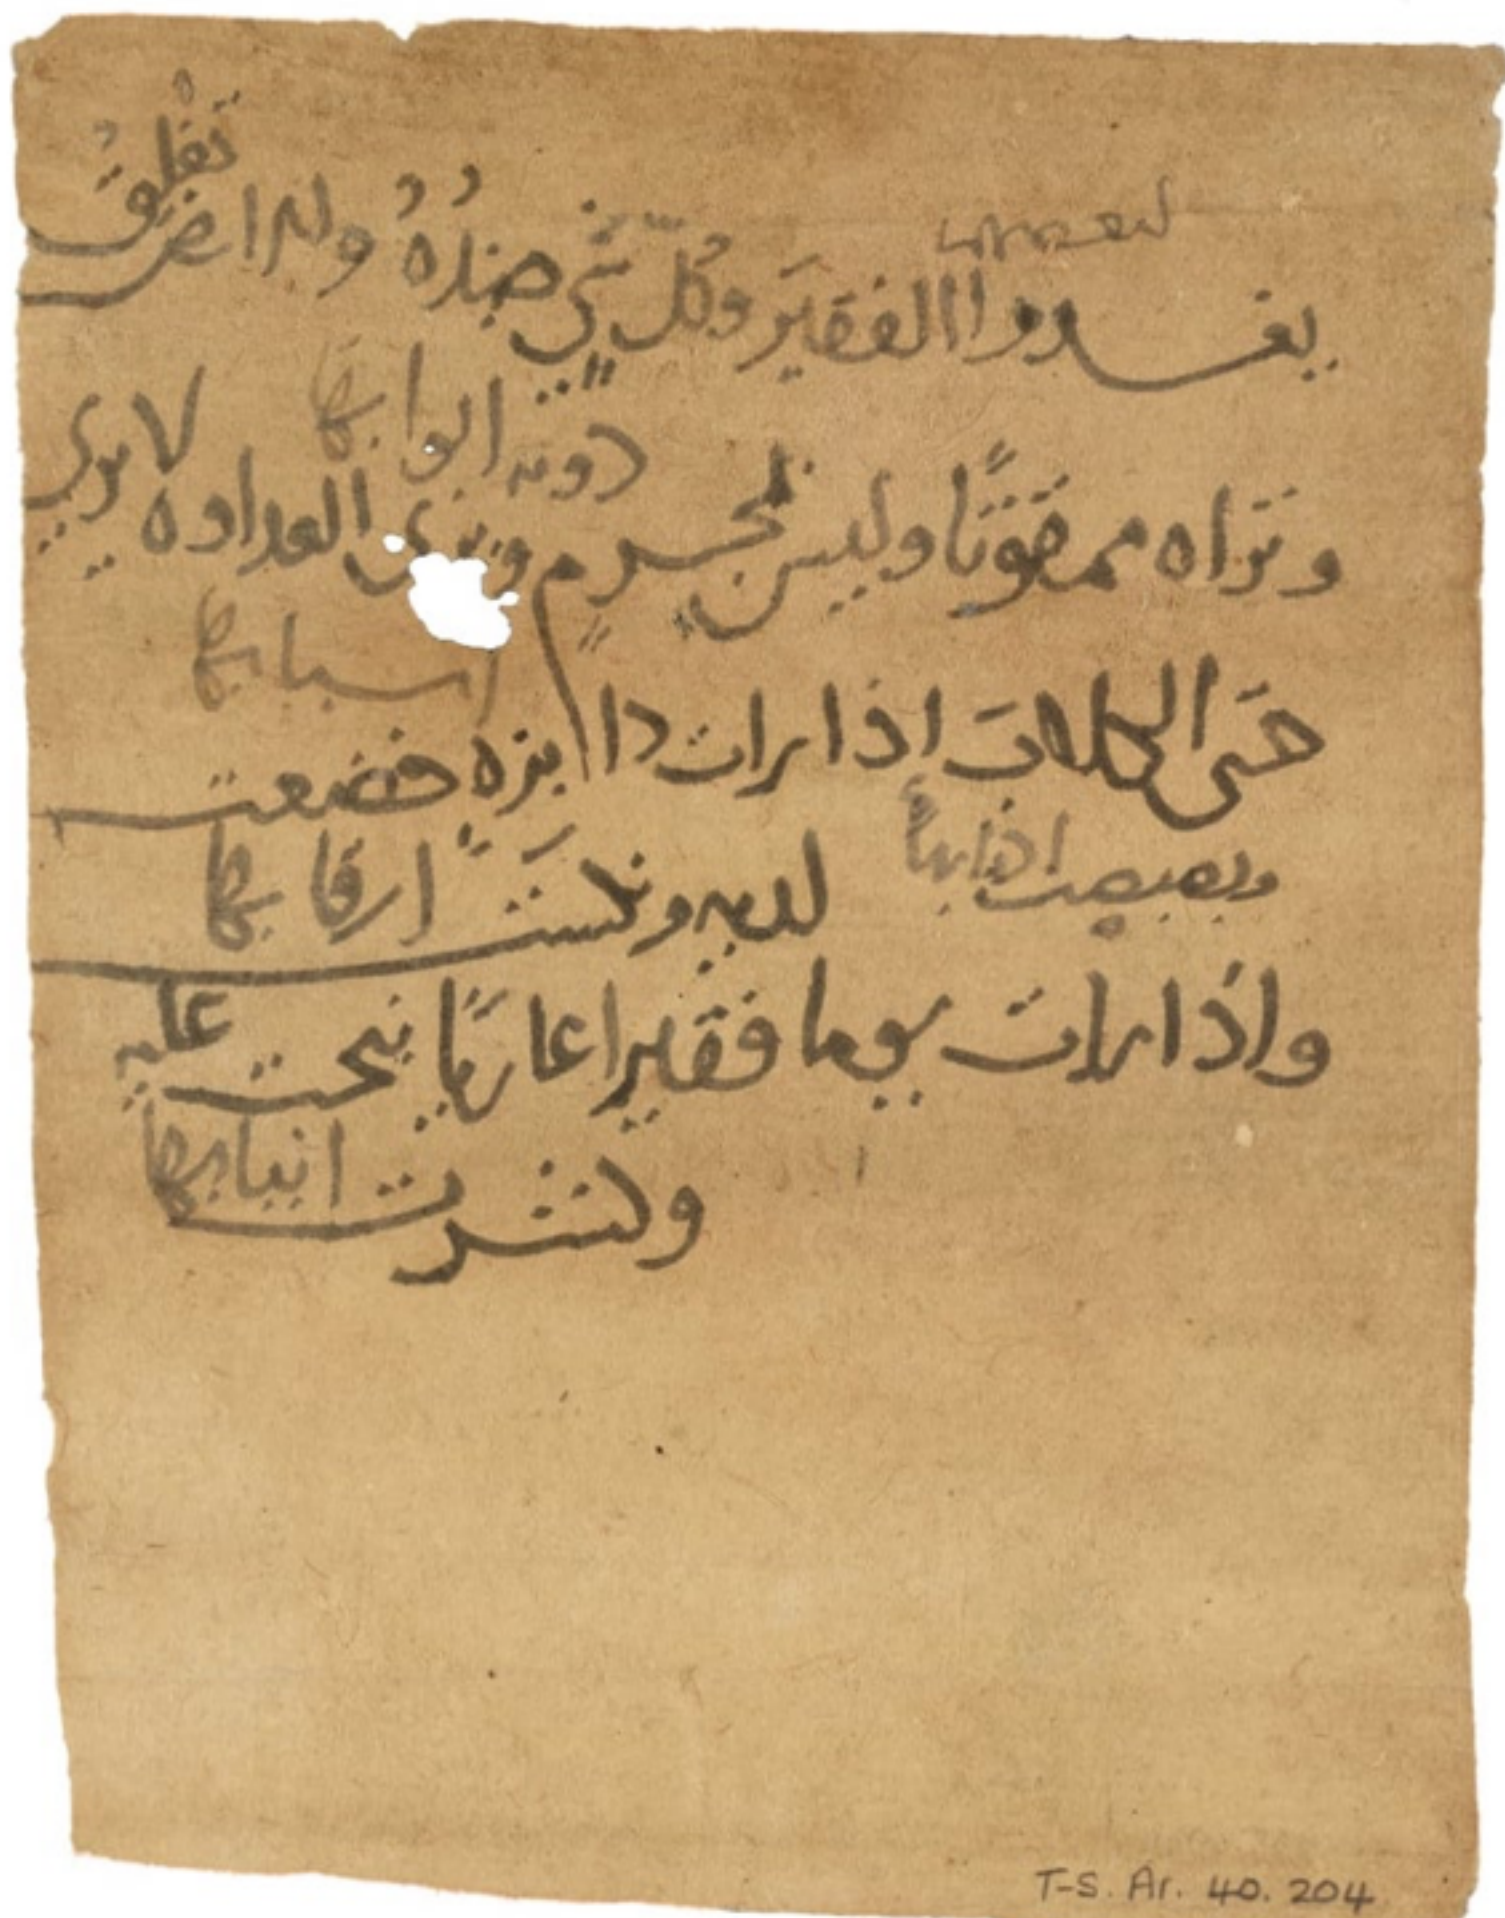 لبعضهم
يغدوا الفقير وكل شي ضده والارض تغلق
دونه ابوابها
وتراه ممقوتا وليس بمجرم ويرى العداوه لا يرى
اسبابها
حتى الكلاب اذا رات ذا بزه خضعت
لديه ونكست ارقابها
وبصبصت اذنابها
واذا رات يوما فقيرا عاريا نبحت عليه
وكشرت انيابها
T-S. Ar. 40. 204